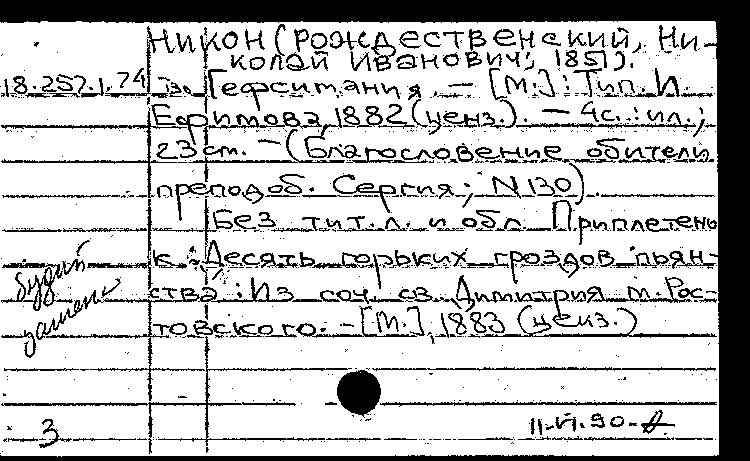 НИКОН (РОЖДЕСТВЕНСКИЙ, НИ-
КОЛАЙ ИВАНОВИЧ; 1851).
18.257.1.74 Гефсимания. — [М.]: Тип. И.
Ефимова, 1882 (ценз.). — 4с.: ил.;
23см. — (Благословение обители
преподоб. Сергия; N130).
Без тит.л. и обл. Приплетено
к.: Десять горьких гроздов пьян-
ства: Из соч. св. Димитрия м. Рос-
товского. — [М.], 1883 (ценз.)
будит
замене
3
11.VI.90-